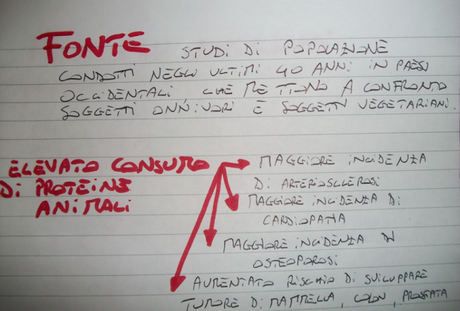 FONTE STUDI DI POPOLAZIONE
CONDOTTI NEGLI ULTIMI 40 ANNI IN PAESI
OCCIDENTALI CHE METTONO A CONFRONTO
SOGGETTI ONNIVORI E SOGGETTI VEGETARIANI.
ELEVATO CONSUMO
DI PROTEINE
ANIMALI
MAGGIORE INCIDENZA
DI ARTERIOSCLEROSI
MAGGIORE INCIDENZA DI
CARDIOPATIA
MAGGIORE INCIDENZA DI
OSTEOPOROSI
AUMENTATO RISCHIO DI SVILUPPARE
TUMORE DI MAMMELLA, COLON, PROSTATA